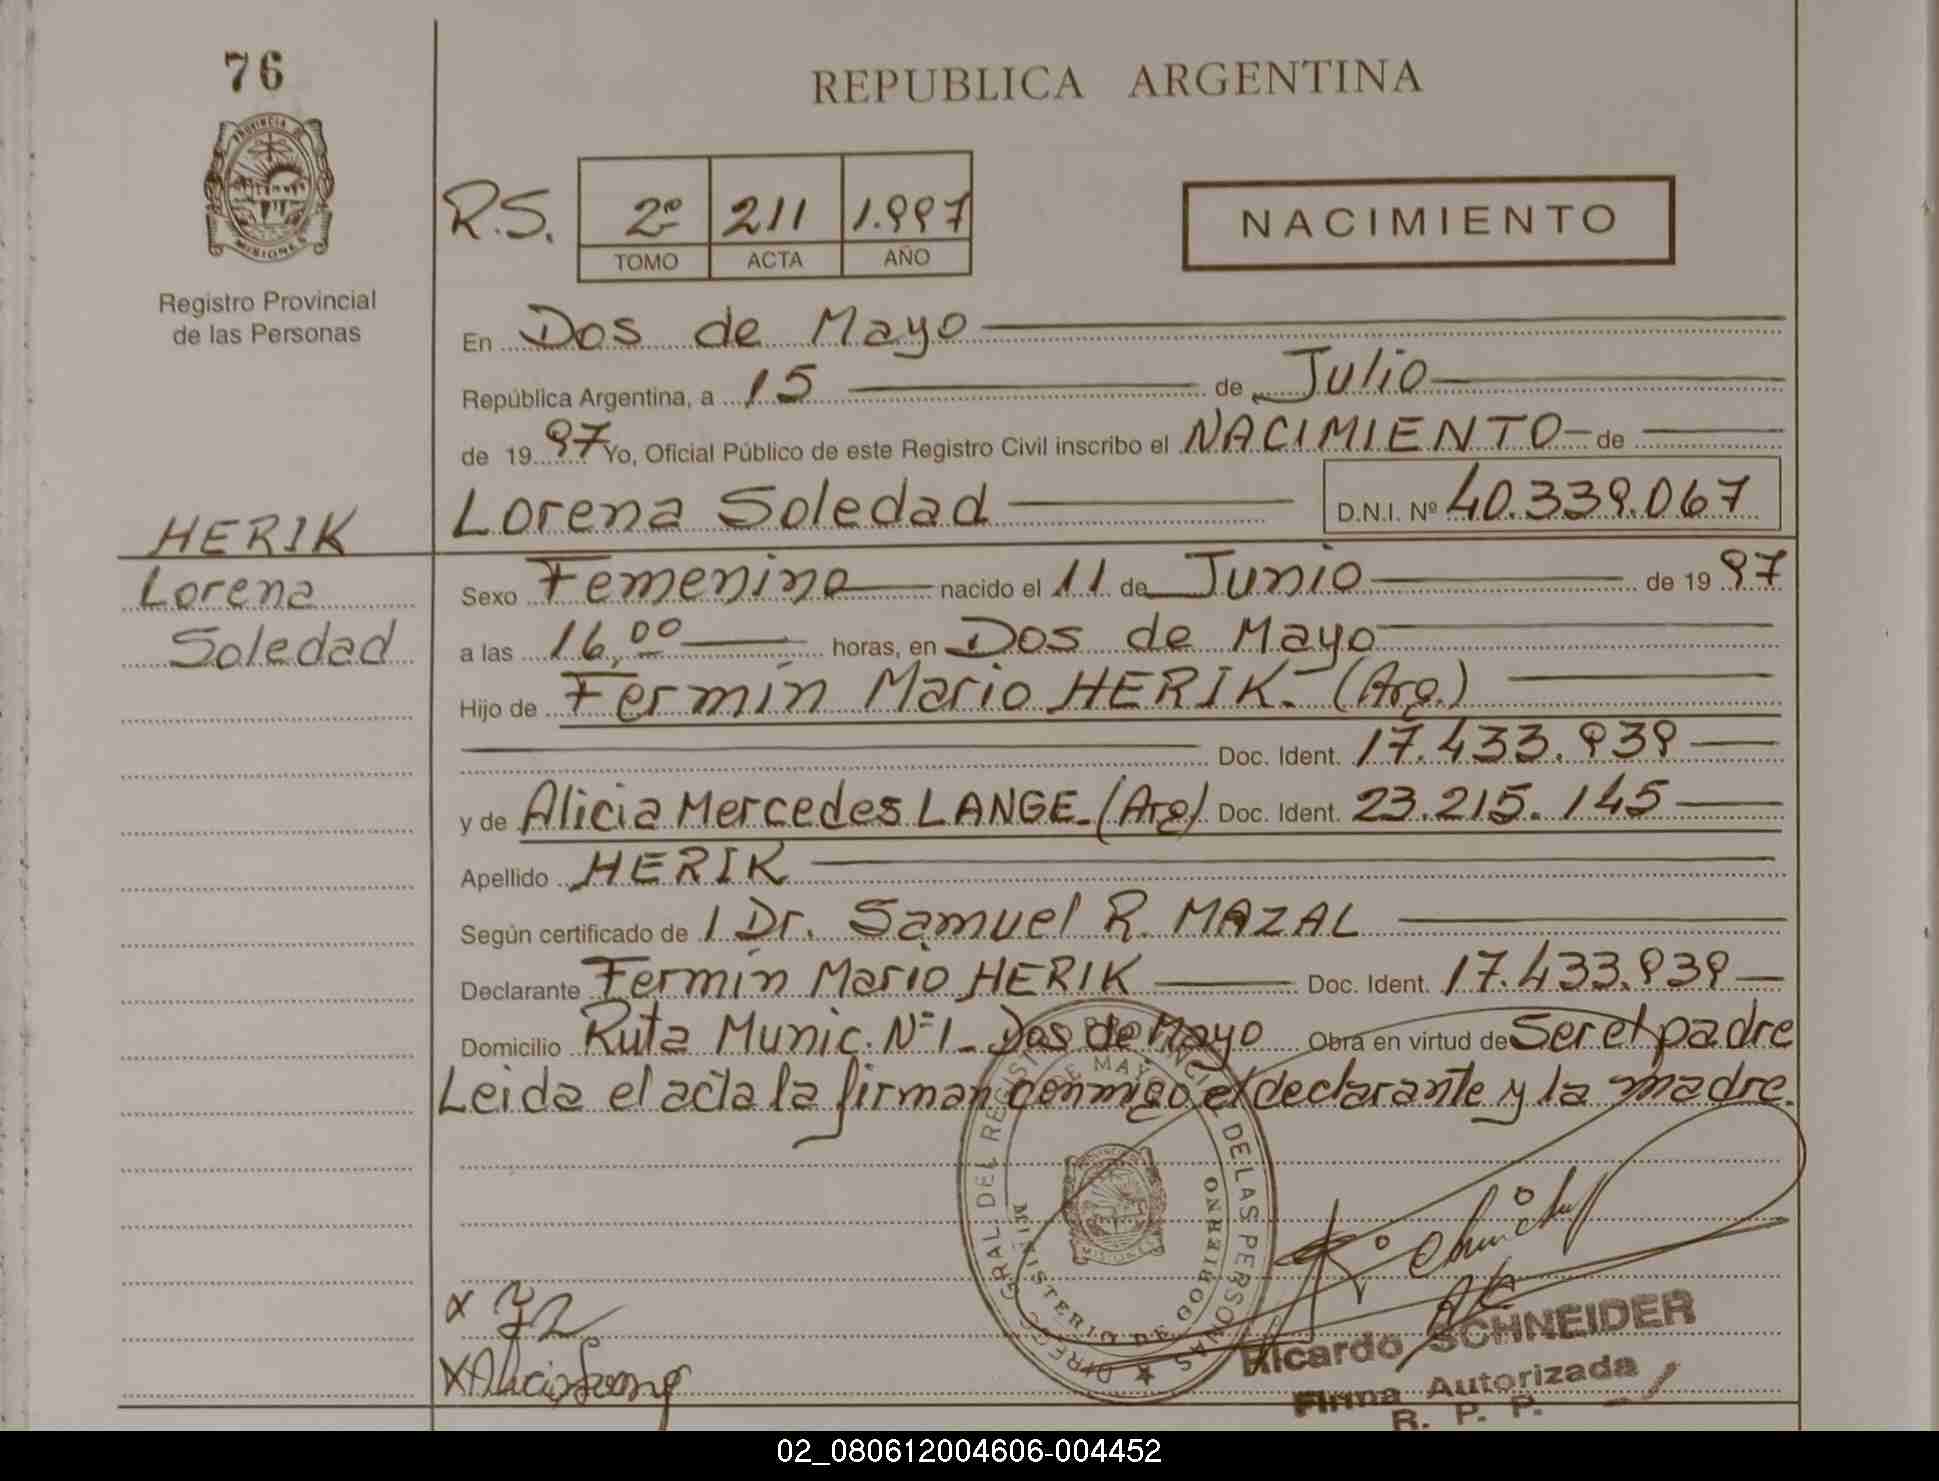 76
PROVINCIA DE
MISIONES
Registro Provincial
de las Personas
HERIK
Lorena
Soledad
REPUBLICA ARGENTINA
R.S. 2º 211 1.997
TOMO ACTA AÑO
NACIMIENTO
En Dos de Mayo
República Argentina, a 15 de Julio
de 19 97 Yo, Oficial Público de este Registro Civil inscribo el NACIMIENTO de
Lorena Soledad D.N.I. Nº 40.339.067
Sexo Femenino nacido el 11 de Junio de 19 97
a las 16,00 horas, en Dos de Mayo
Hijo de Fermín Mario HERIK.- (Arg.)
Doc. Ident. 17.433.939
y de Alicia Mercedes LANGE.- (Arg) Doc. Ident. 23.215.145
Apellido HERIK
Según certificado de 1 Dr. Samuel R. MAZAL
Declarante Fermín Mario HERIK Doc. Ident. 17.433.939
Domicilio Ruta Munic. Nº 1 - Dos de Mayo Obra en virtud de Ser el padre
Leida el acta la firman conmigo el declarante y la madre.
DIREC. GRAL DEL REGISTRO PROVINCIAL DE LAS PERSONAS
DE MAYO
MINISTERIO DE GOBIERNO
MISIONES
Ricardo SCHNEIDER
Firma Autorizada
R. P. P.
02_080612004606-004452